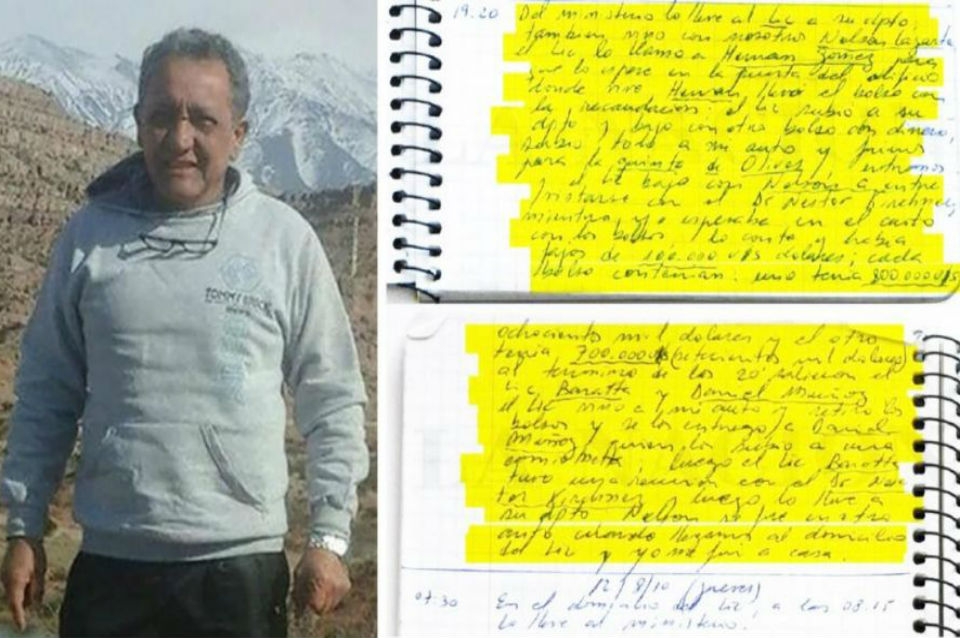 TOMMY
19.20 Del ministerio lo lleve al Lic a su dpto,
tambien vino con nosotros Nelson Lazarte
el Lic lo llamo a Hernan Gomez para
que lo espere en la puerta del edificio
donde vive Hernan llevó el bolso con
la recaudacion; el Lic subio a su
dpto y bajo con otro bolso con dinero,
subio todo a mi auto y fuimos
para la quinta de Olivos, entramos
el Lic bajo con Nelson a entre
vistarse con el Dr Nestor Kirchner,
mientras yo esperaba en el auto
con los bolsos, lo conte y habia
fajos de 100.000 U$S dolares; cada
bolso contenian: uno tenia 800.000 U$S
ochocientos mil dolares y el otro
tenia 700.000 U$S (setecientos mil dolares)
al termino de los 20' salieron el
Lic Baratta y Daniel Muñoz
el Lic vino a mi auto y retiro los
bolsos y se los entrego a Daniel
Muñoz, quien los subio a una
camioneta, luego el Lic Baratta
tuvo una reunion con el Dr Nes-
tor Kirchner, luego lo lleve a
su dpto Nelson se fue en otro
auto cuando llegamos al domicilio
del Lic y yo me fui a casa.
12/8/10 (jueves)
07:30 En el domicilio del Lic, a las 08.15
lo lleve al ministerio.